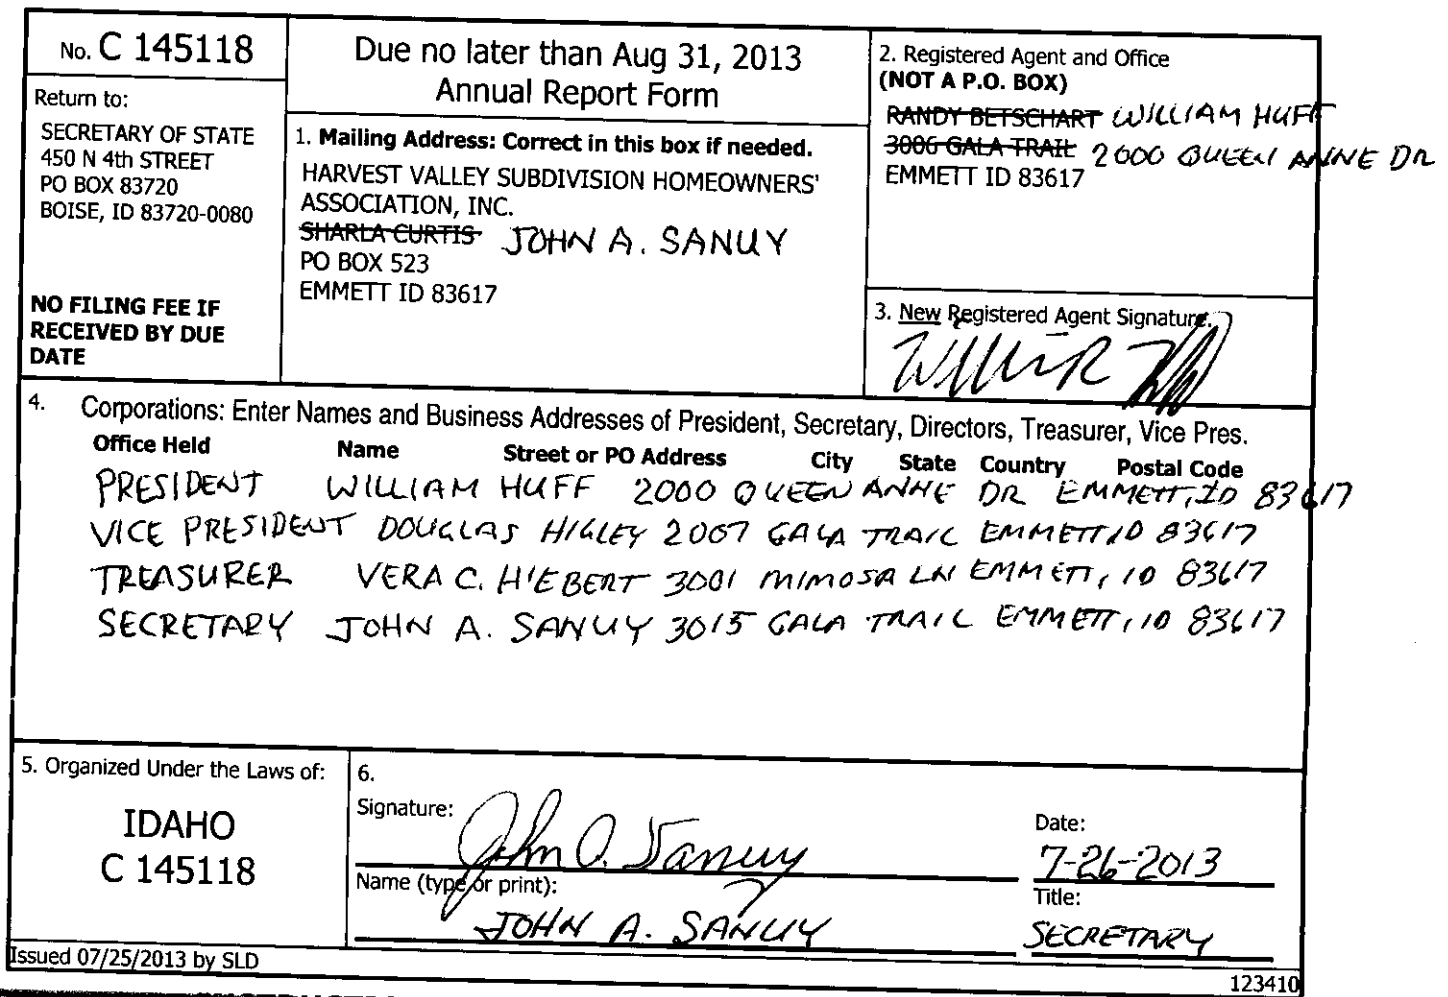 No. C 145118
Return to:
SECRETARY OF STATE
450 N 4th STREET
PO BOX 83720
BOISE, ID 83720-0080
NO FILING FEE IF
RECEIVED BY DUE
DATE
Due no later than Aug 31, 2013
Annual Report Form
1. Mailing Address: Correct in this box if needed.
HARVEST VALLEY SUBDIVISION HOMEOWNERS'
ASSOCIATION, INC.
SHARLA CURTIS JOHN A. SANUY
PO BOX 523
EMMETT ID 83617
2. Registered Agent and Office
(NOT A P.O. BOX)
RANDY BETSCHART WILLIAM HUFF
3006 GALA TRAIL 2000 QUEEN ANNE DR
EMMETT ID 83617
3. New Registered Agent Signature.
4. Corporations: Enter Names and Business Addresses of President, Secretary, Directors, Treasurer, Vice Pres.
Office Held Name Street or PO Address City State Country Postal Code
PRESIDENT WILLIAM HUFF 2000 QUEEN ANNE DR EMMETT, ID 83617
VICE PRESIDENT DOUGLAS HIGLEY 2007 GALA TRAIL EMMETT ID 83617
TREASURER VERA C. HIEBERT 3001 MIMOSA LN EMMETT, ID 83617
SECRETARY JOHN A. SANUY 3015 GALA TRAIL EMMETT, ID 83617
5. Organized Under the Laws of:
IDAHO
C 145118
6.
Signature: John A. Sanuy
Name (type or print):
JOHN A. SANUY
Date:
7-26-2013
Title:
SECRETARY
Issued 07/25/2013 by SLD
123410